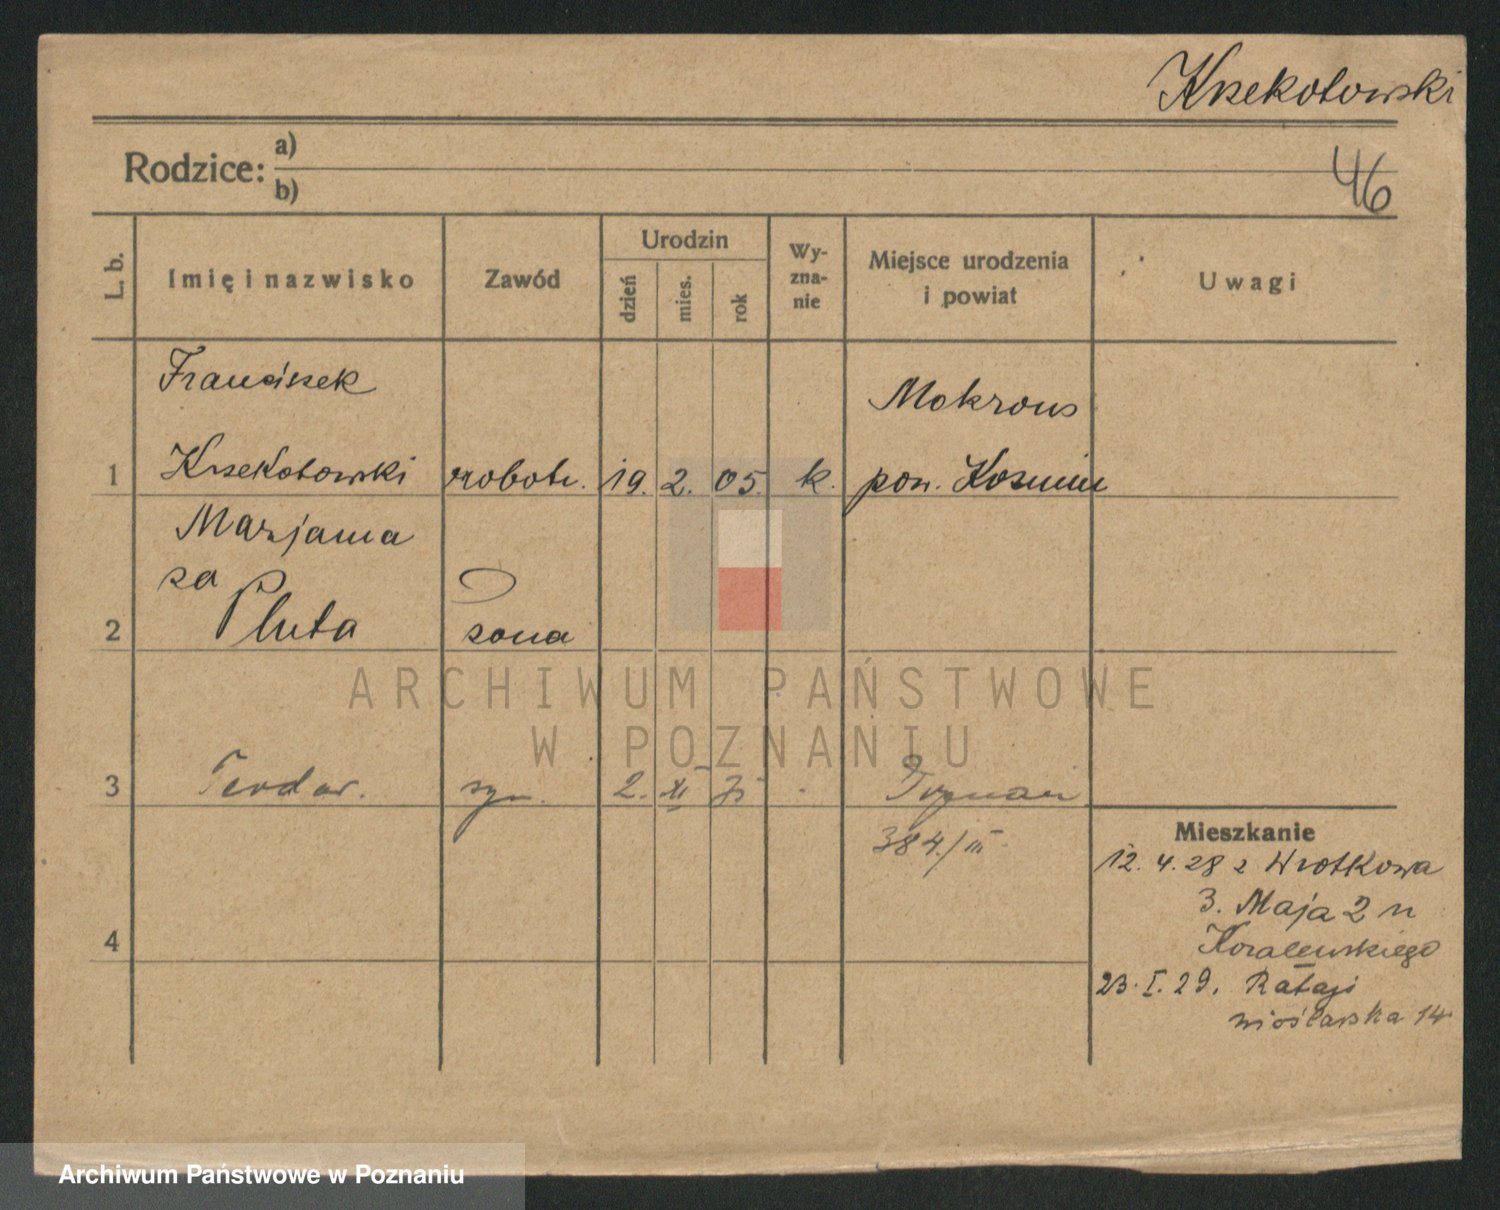 Krzekotowski
Rodzice: a)
b)
46
L. b.
Imię i nazwisko
Zawód
Urodzin
dzień
mies.
rok
Wy-
zna-
nie
Miejsce urodzenia
i powiat
Uwagi
Franciszek
Krzekotowski
robotn.
19. 2. 05.
k.
Mokronos
pow. Kozmin
1
Marjanna
za
Pluta
żona
2
3
Teodor.
syn.
2. XI
Poznań
384/III
4
Mieszkanie
12. 4. 28 z Wrotkowa
3. Maja 2 u
Koralewskiego
23. I. 29. Rataji
wioślarska 14
ARCHIWUM PAŃSTWOWE
W POZNANIU
Archiwum Państwowe w Poznaniu